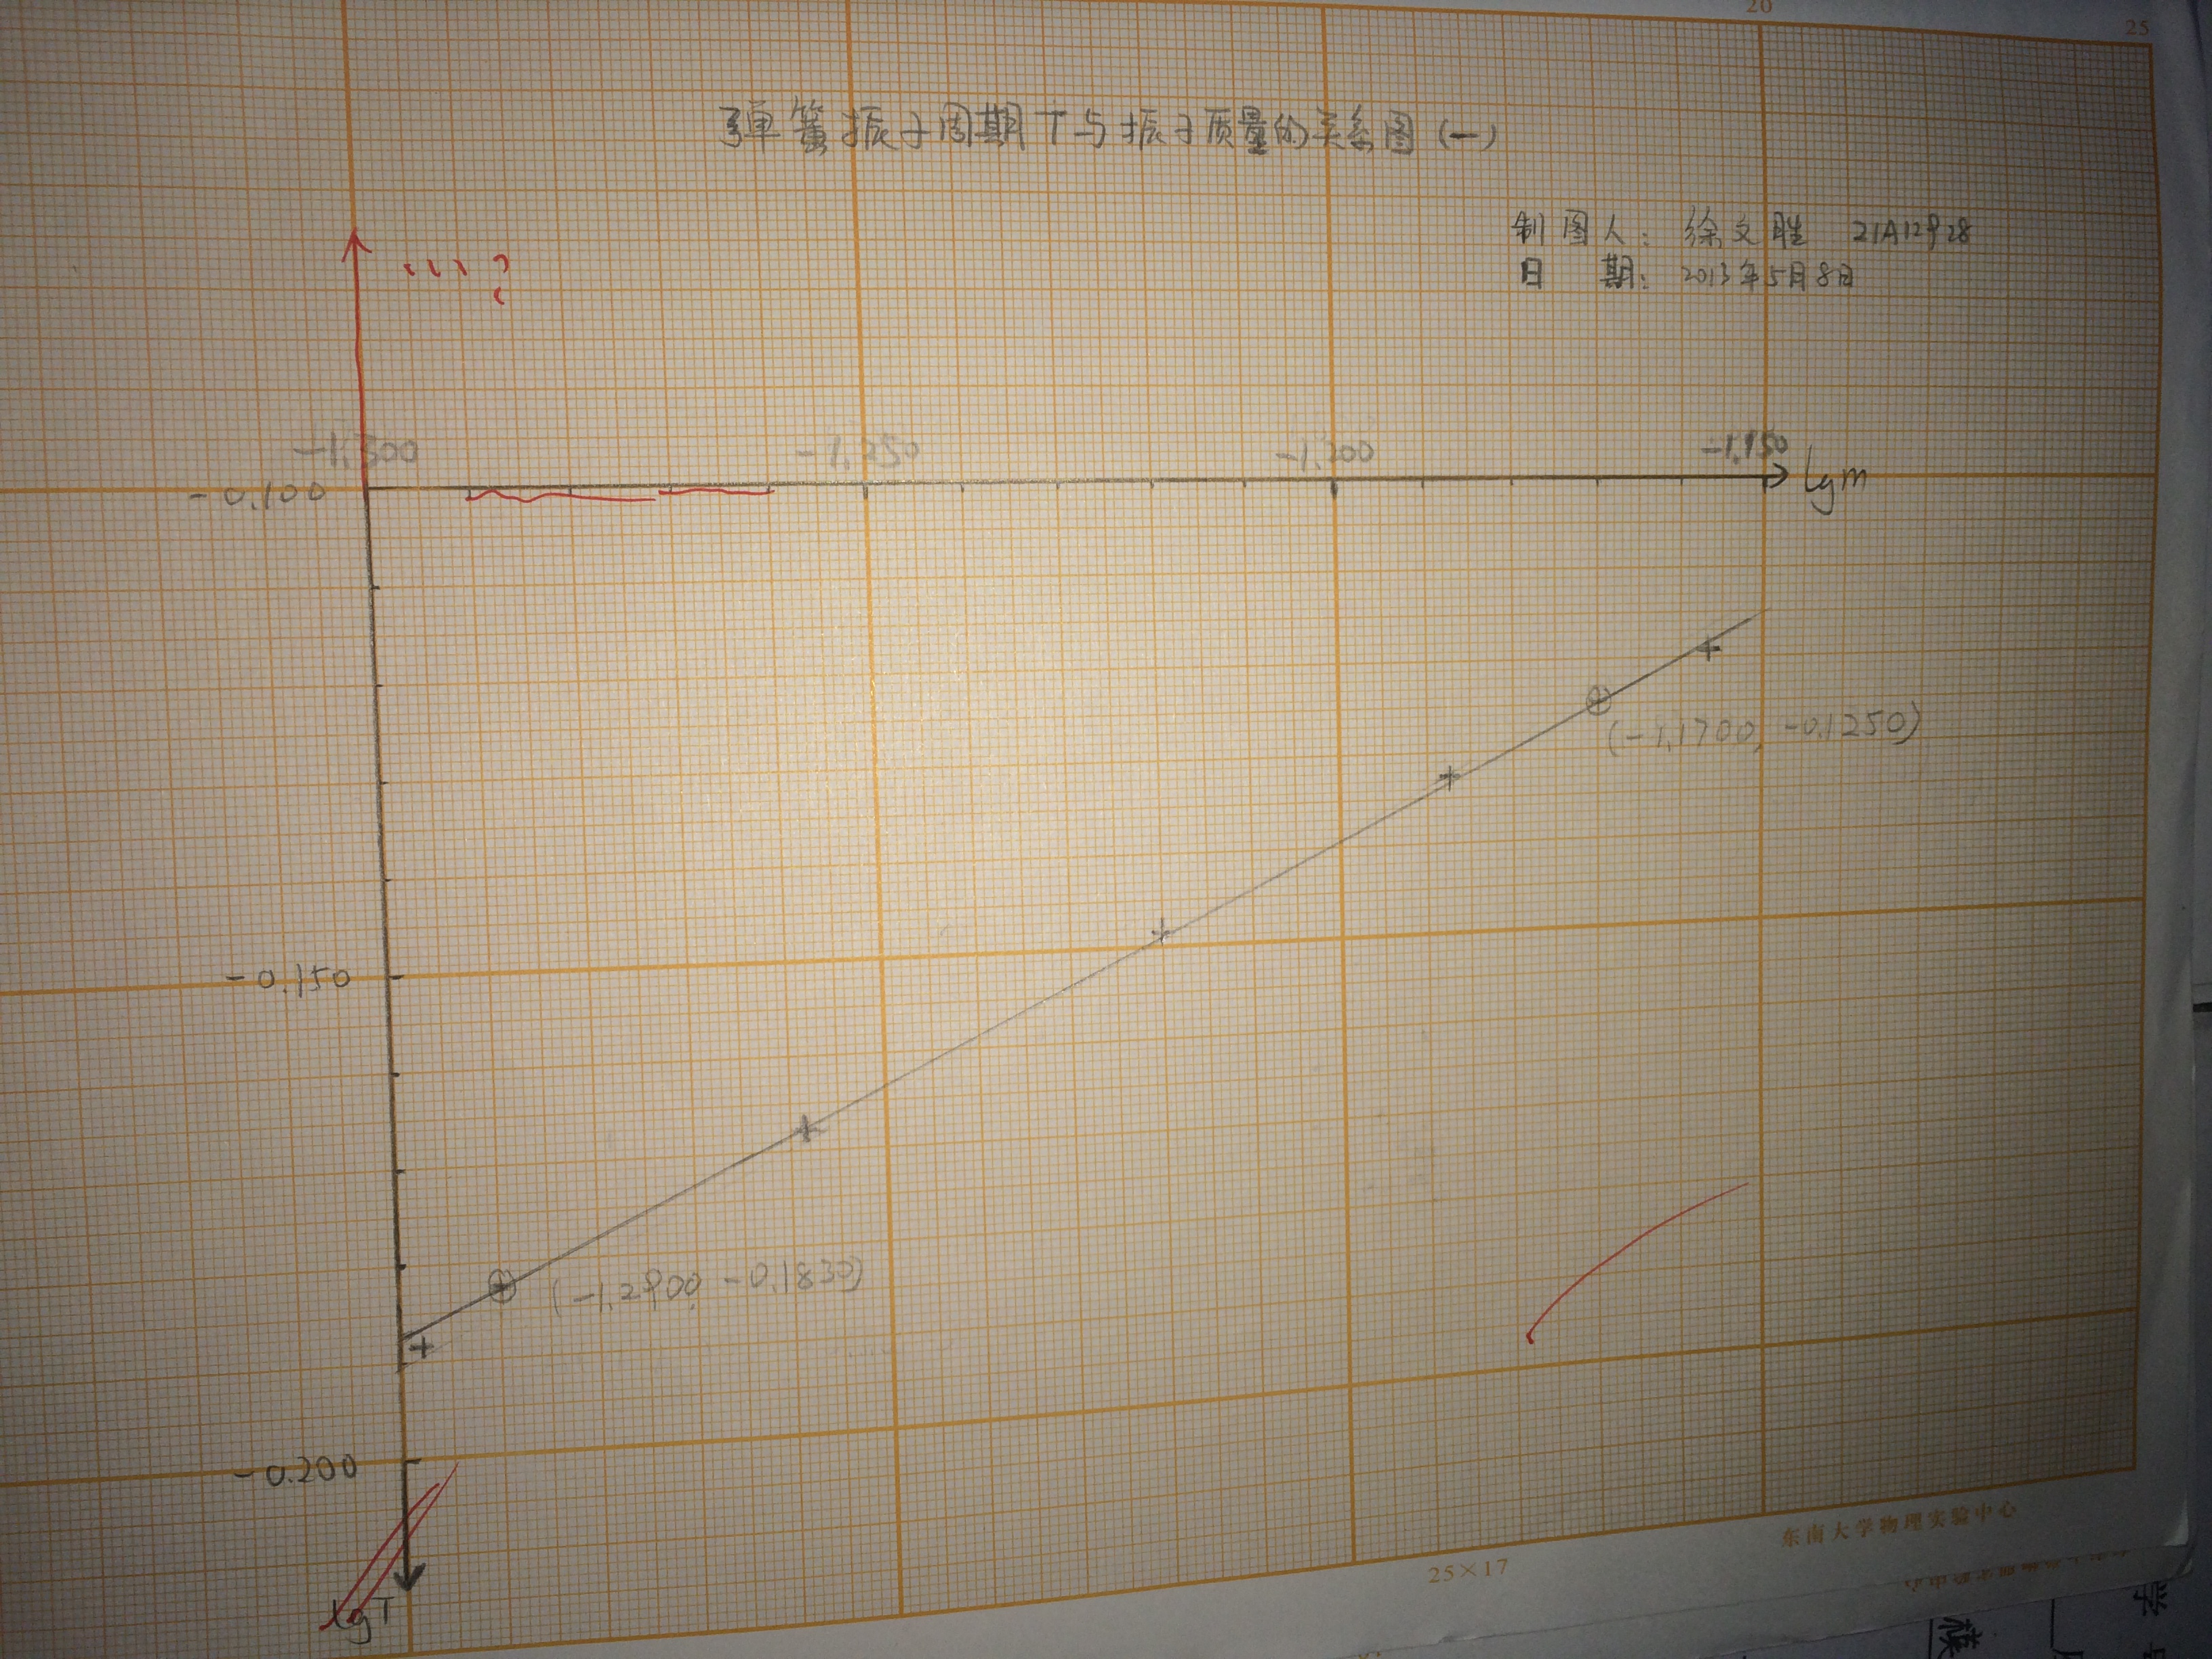 20
25
弹簧振子周期T与振子质量的关系图(一)
制图人: 徐文胜 21A12928
日 期: 2013年5月8日
?
-1.300 -1.250 -1.200 -1.150
-0.100
lgm
(-1.1700, -0.1250)
-0.150
(-1.2900, -0.1830)
-0.200
lgT
25×17
东南大学物理实验中心